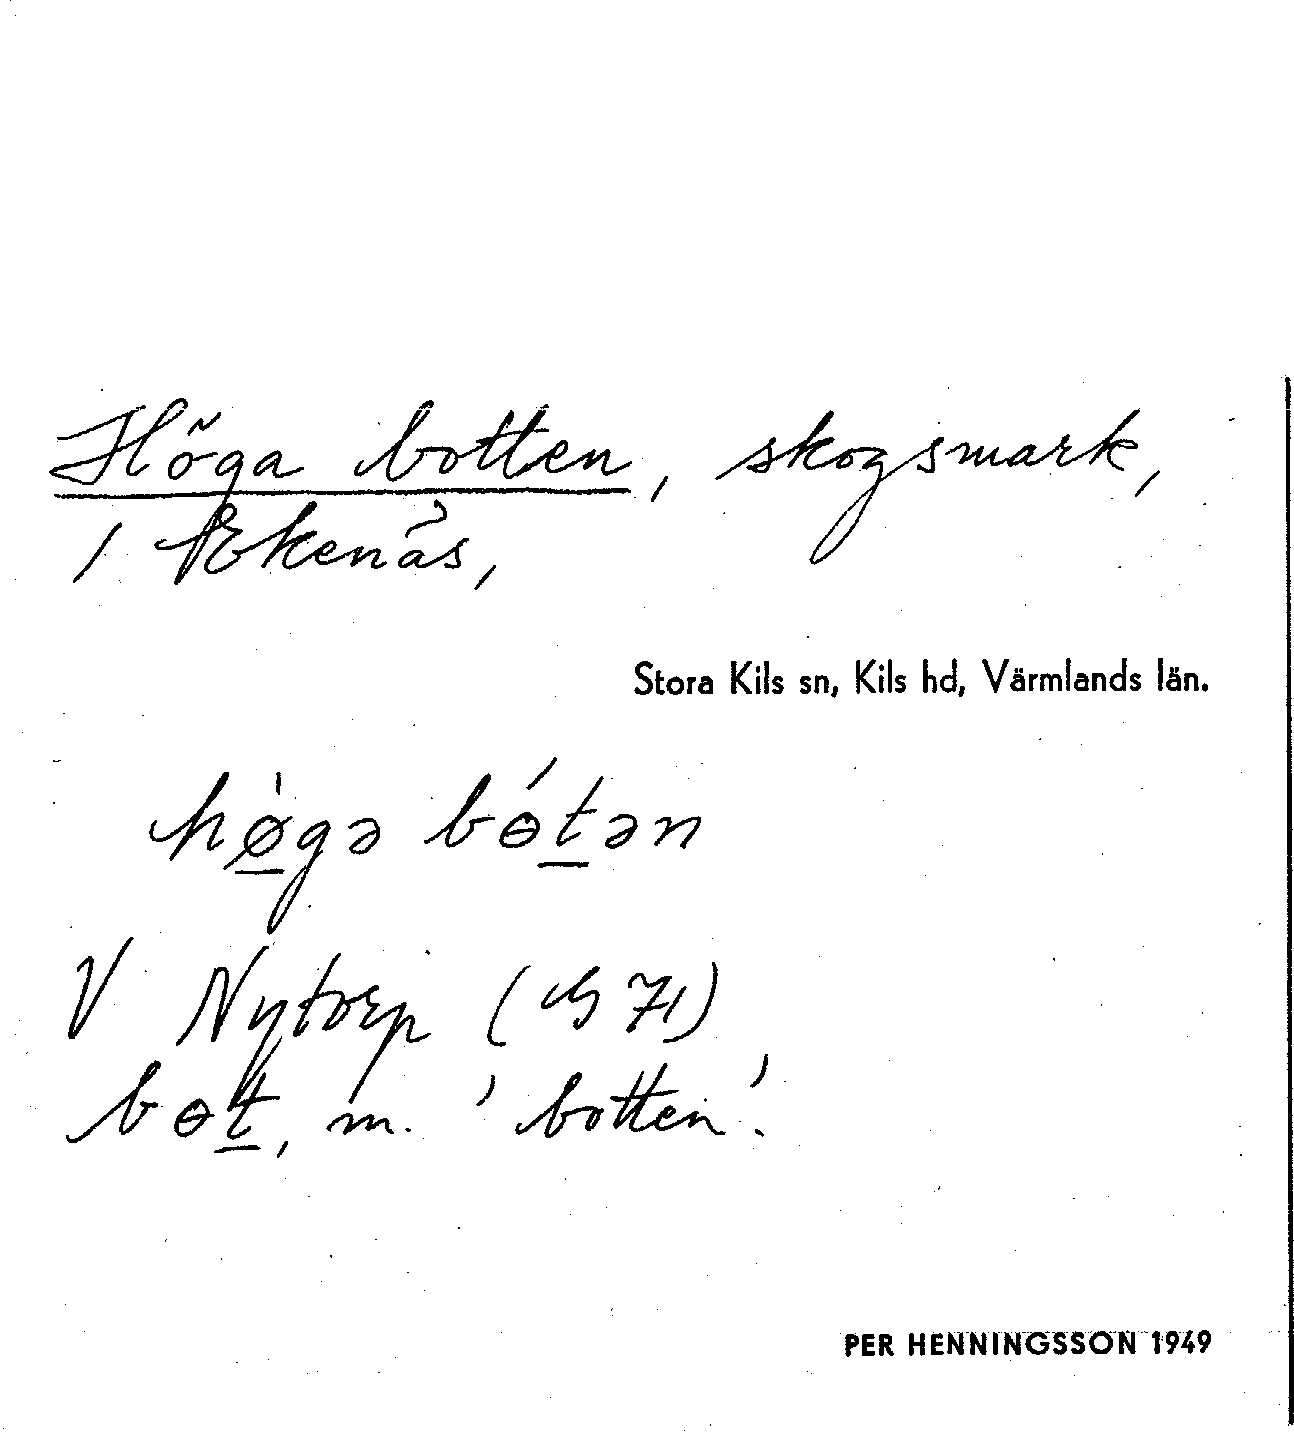 Höga botten, skogsmark,
i Ekenäs,
Stora Kils sn, Kils hd, Värmlands län.
hø̀gə bɵ́tən
V Nytorp (
bɵt, m. 'botten'.
PER HENNINGSSON 1949